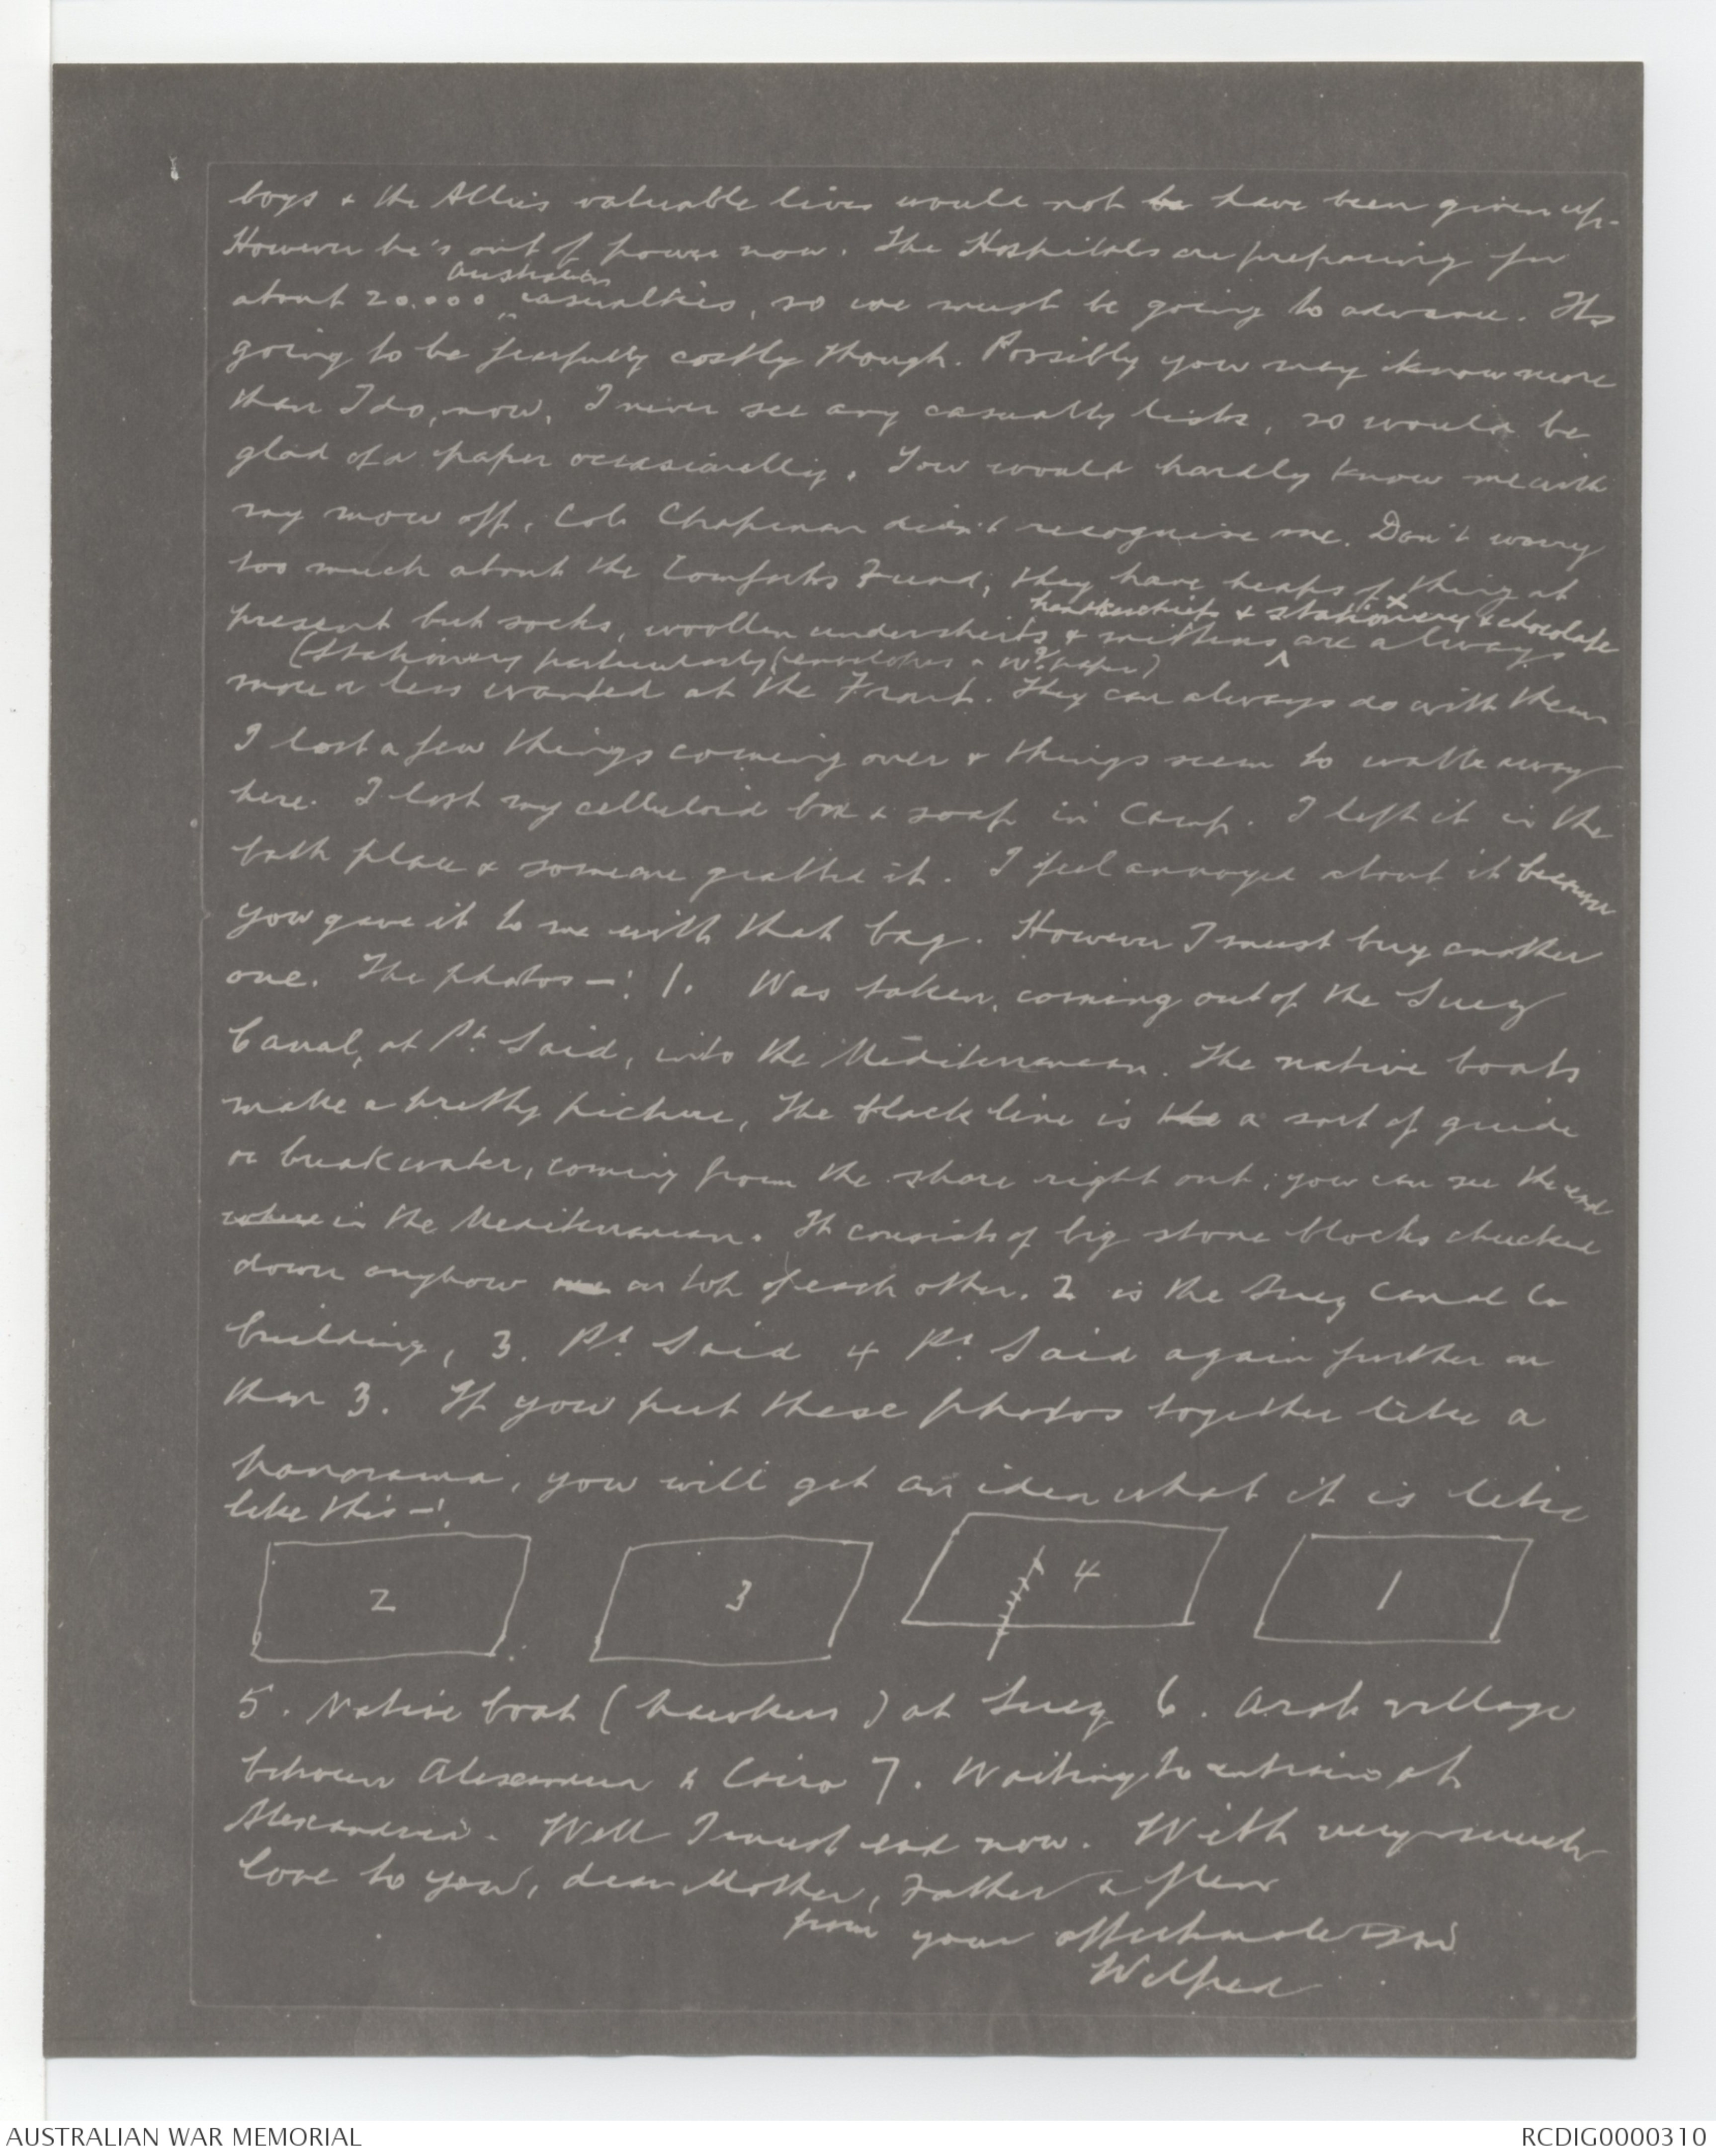 boys & the Allies valuable lives would not be have been given up.
However he's out of power now. The Hospitals are preparing for
Australian
about 20.000 casualties, so we must be going to advance. Its
going to be fearfully costly though. Possibly you may know more
than I do, now. I never see any casualty lists, so would be
glad of a paper occasionally. You would hardly know me with
my mow off, Col. Chapman didn't recognise me. Don't worry
too much about the Comforts Fund, they have heaps of things at
handkerchiefs & stationery & chocolate
present but socks, woollen undershirts & mittens are always
(Stationery particularly (envelopes & wg paper)
more or less wanted at the Front. They can always do with them
I lost a few things coming over & things seem to walk away
here. I lost my celluloid box & soap in Camp. I left it in the
bath place & someone grabbed it. I feel annoyed about it because
you gave it to me with that bag. However I must buy another
one. The photos -: 1. Was taken, coming out of the Suez
Canal, at Pt. Said, into the Mediterranean. The native boats
make a pretty picture, the black line is the a sort of guide
or breakwater, coming from the shore right out; you can see the end
where in the Mediterranean. It consists of big stone blocks chucked
down anyhow on top of each other. 2 is the Suez Canal Co
building, 3. Pt. Said 4 Pt. Said again further on
than 3. If you put these photos together like a
panorama, you will get an idea what it is like
like this -:
2 3 4 1
5. Native boat (hawkers) at Suez 6. Arab village
between Alexandria & Cairo 7. Waiting to entrain at
Alexandria. Well I must end now. With very much
love to you, dear Mother, Father &
from your affectionate son
Wilfred
AUSTRALIAN WAR MEMORIAL
RCDIG0000310